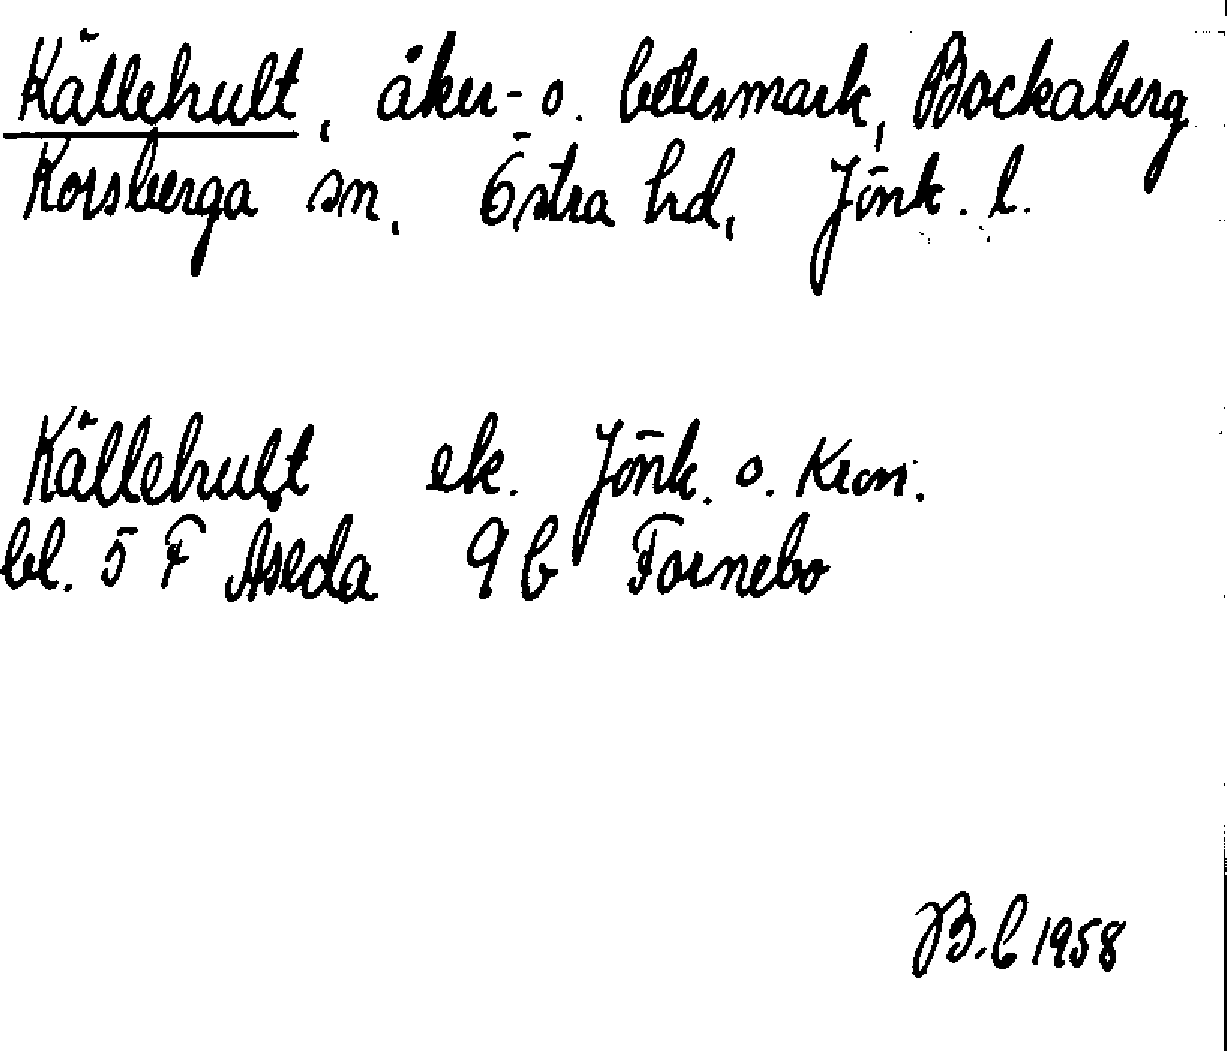 Källehult, åker- o. betesmark, Bockaberg
Korsberga sn, Östra hd, Jönk. l.
Källehult ek. Jönk. o. Kron.
bl. 5 F Åseda 9 b Fornebo
B.C 1958